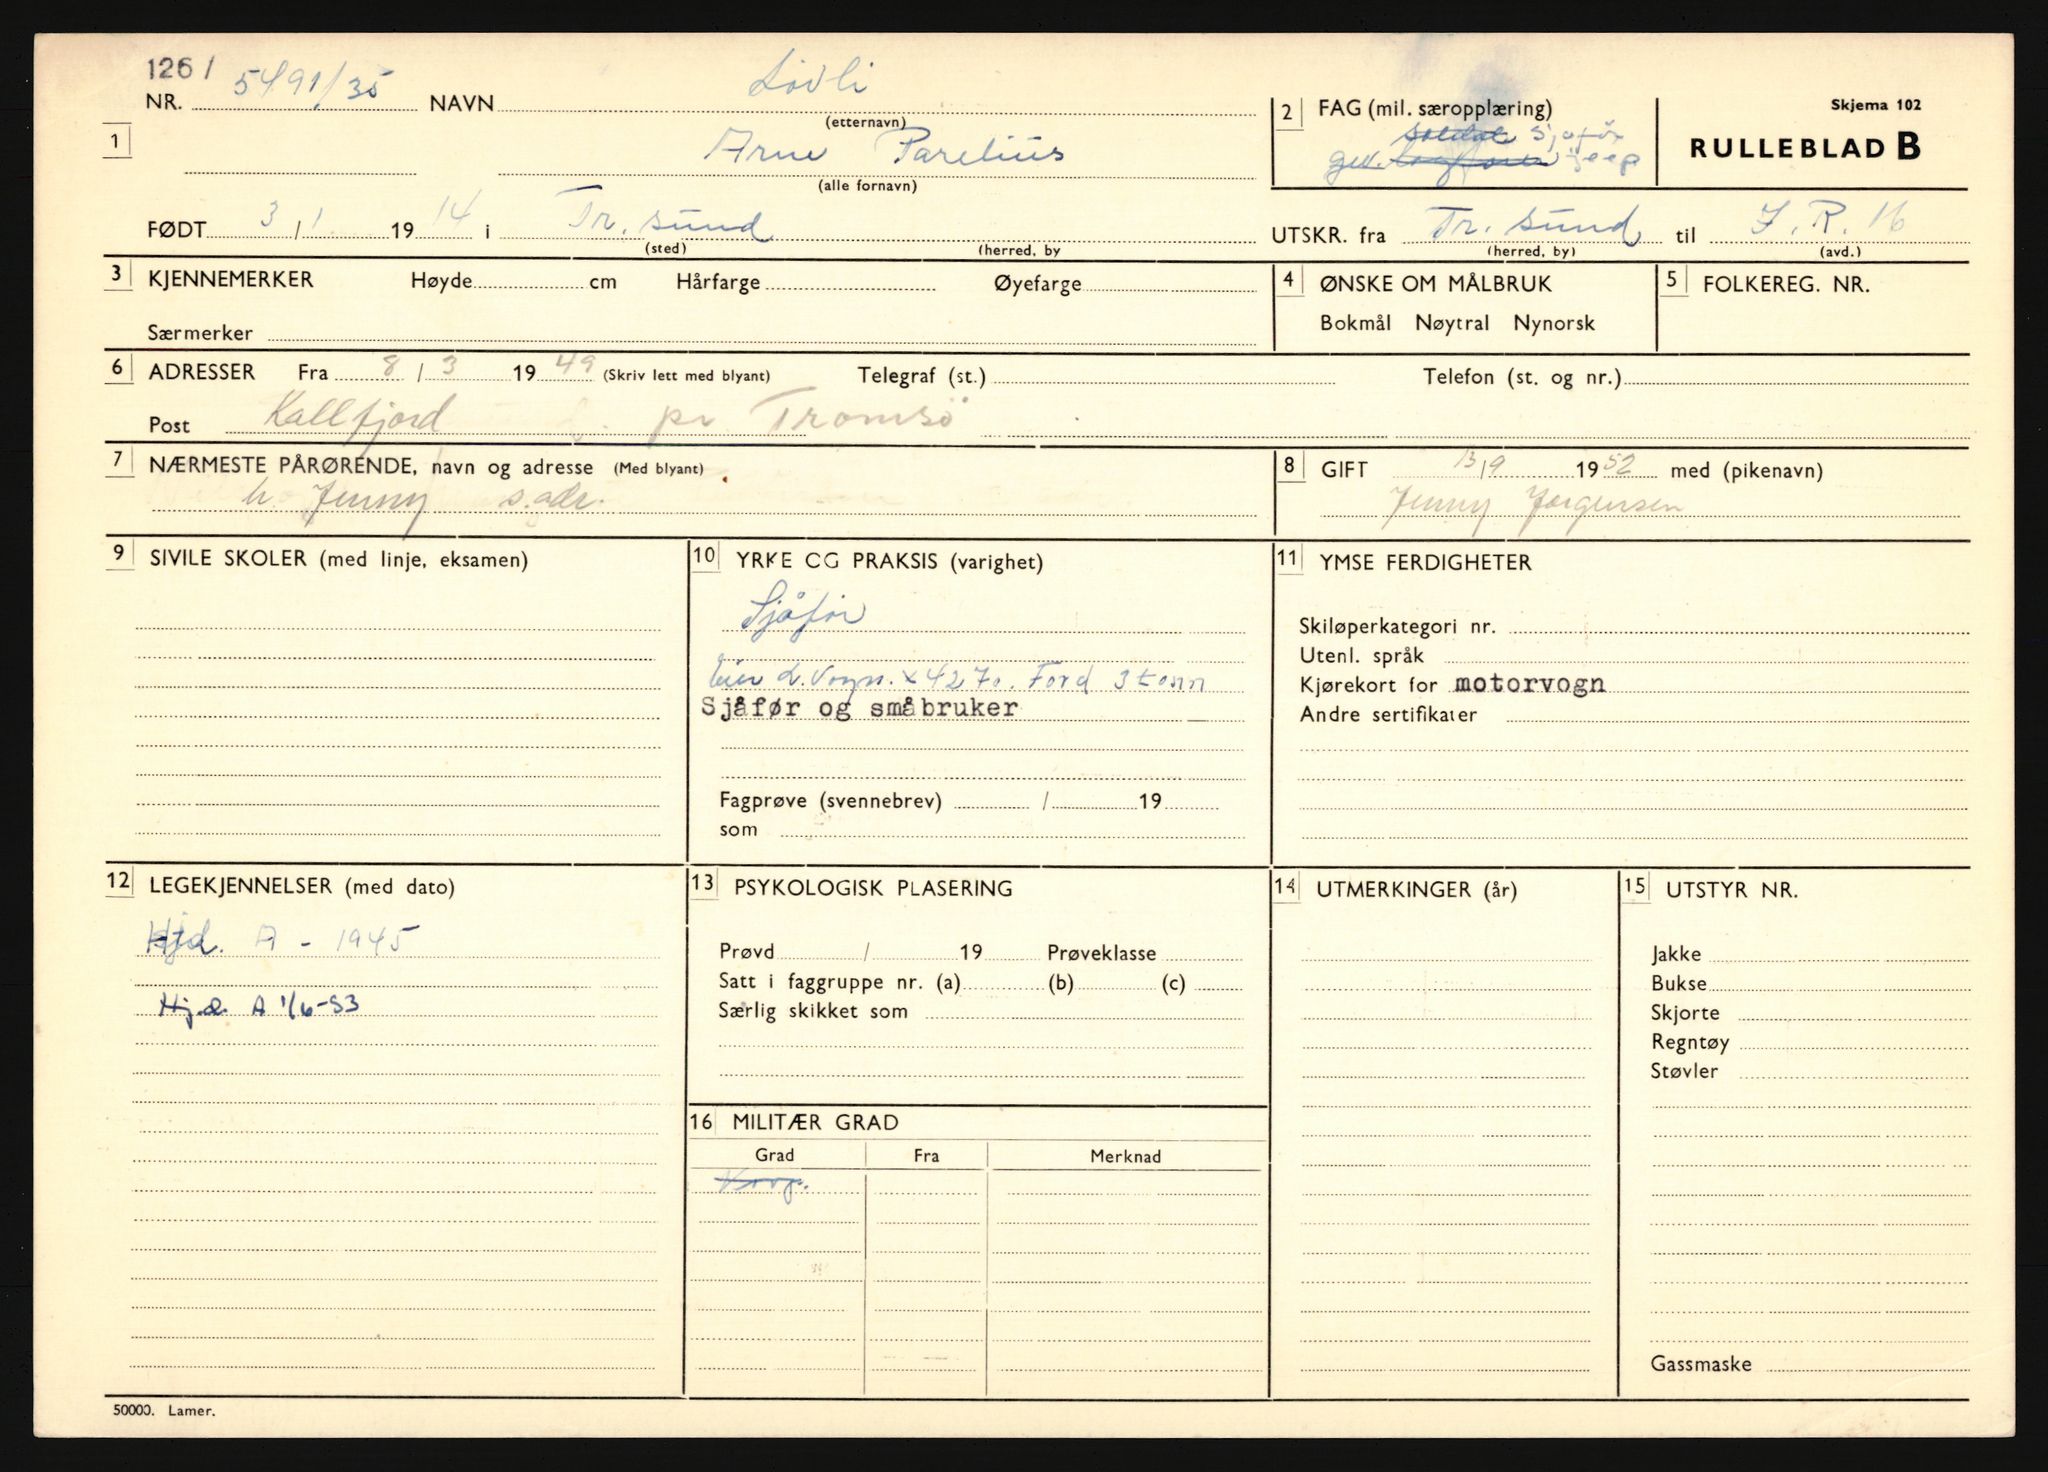 126/
NR. 5491/35 NAVN Lövli
(etternavn)
1
Arne Parelius
(alle fornavn)
2 FAG (mil. særopplæring)
soldat Sjåfør
gev. jeep
Skjema 102
RULLEBLAD B
FØDT 3/1 1914 i Tr. sund
(sted) (herred, by
UTSKR. fra Tr. sund til I. R. 16
(herred, by) (avd.)
3 KJENNEMERKER Høyde cm Hårfarge Øyefarge
Særmerker
4 ØNSKE OM MÅLBRUK
Bokmål Nøytral Nynorsk
5 FOLKEREG. NR.
6 ADRESSER Fra 8/3 1949 (Skriv lett med blyant) Telegraf (st.) Telefon (st. og nr.)
Post Kallfjord pr. Tromsö
7 NÆRMESTE PÅRØRENDE, navn og adresse (Med blyant)
h. Jenny s. adr.
8 GIFT 13/9 1952 med (pikenavn)
Jenny Jørgensen
9 SIVILE SKOLER (med linje, eksamen)
10 YRKE CG PRAKSIS (varighet)
Sjåför
Eier L. Vogn. x 4270. Ford 3 tonn
Sjåfør og småbruker
Fagprøve (svennebrev) / 19
som
11 YMSE FERDIGHETER
Skiløperkategori nr.
Utenl. språk
Kjørekort for motorvogn
Andre sertifikater
12 LEGEKJENNELSER (med dato)
Hjd. A - 1945
Hj.d. A 1/6-53
13 PSYKOLOGISK PLASERING
Prøvd / 19 Prøveklasse
Satt i faggruppe nr. (a) (b) (c)
Særlig skikket som
14 UTMERKINGER (år)
15 UTSTYR NR.
Jakke
Bukse
Skjorte
Regntøy
Støvler
Gassmaske
16 MILITÆR GRAD
Grad Fra Merknad
Korp.
50000. Lamer.